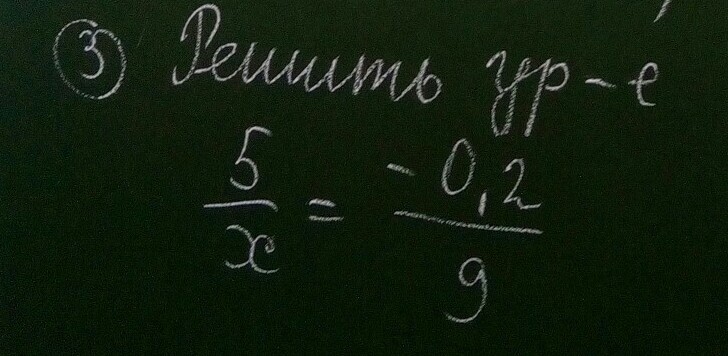 ③ Решить ур-е
5/x = -0,2/9